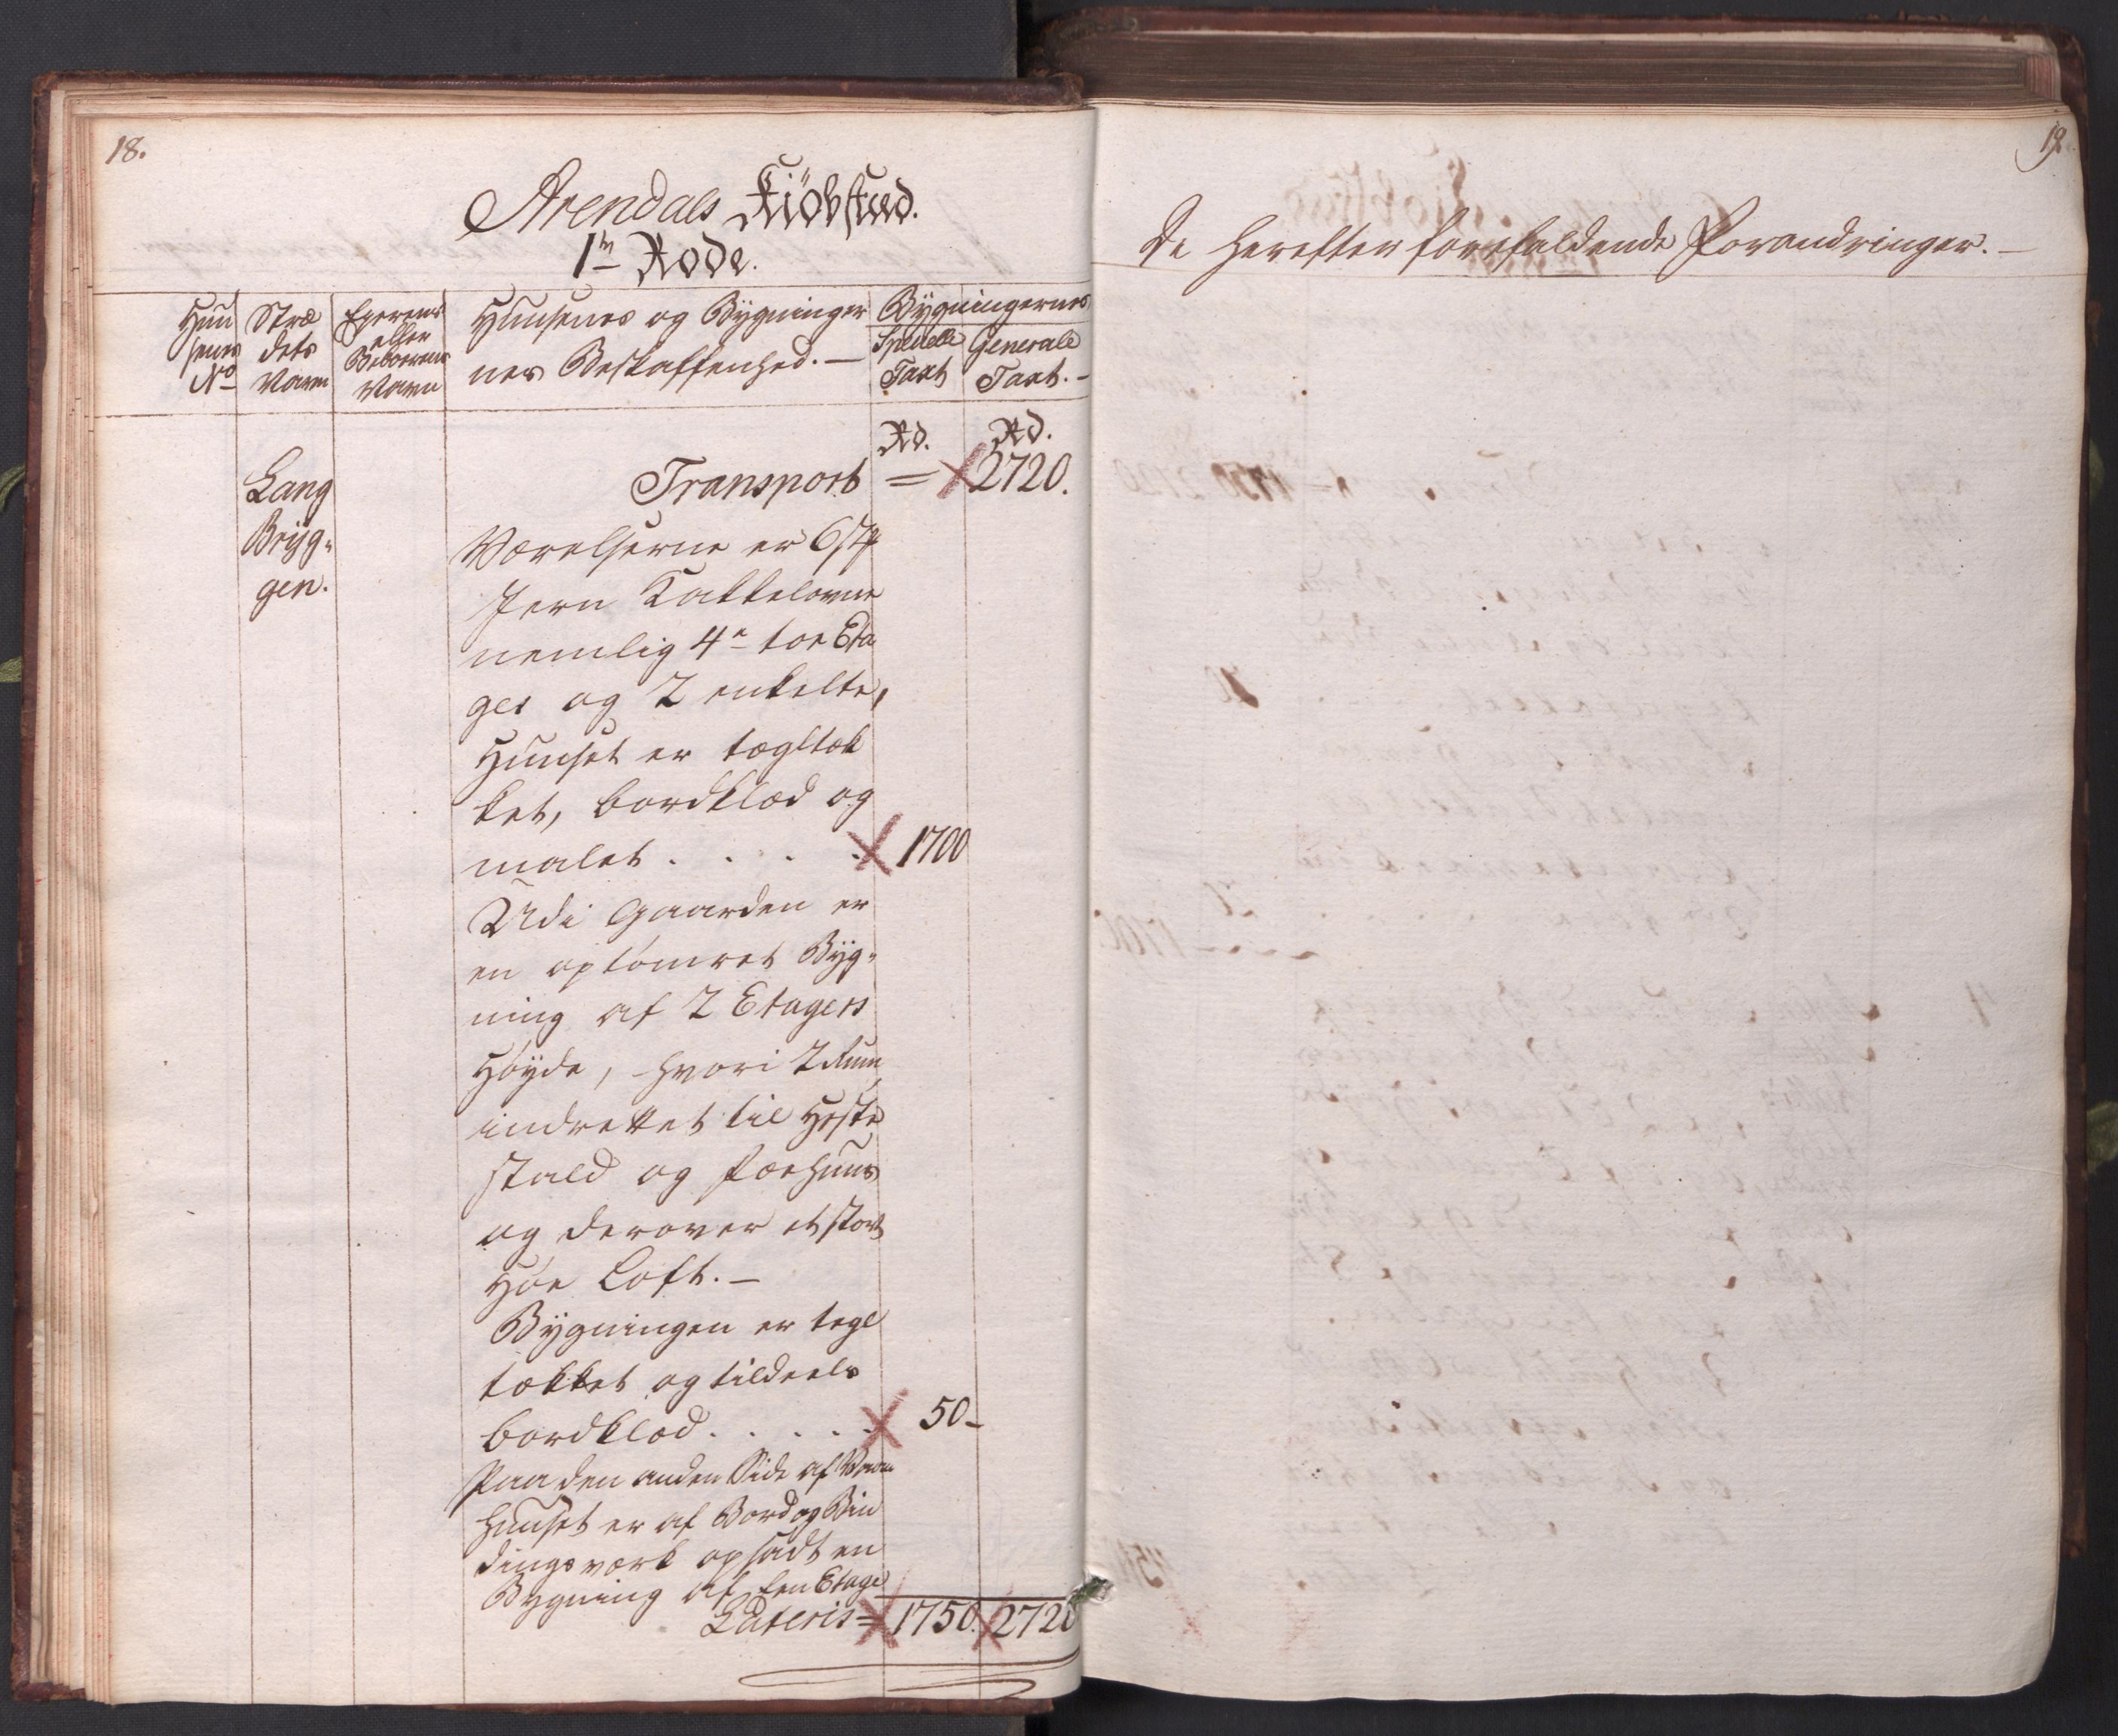 18.
Arendals Kiöbstæd.
1te Rode.
Huu
senes
No
Stræ
dets
Navn
Eyerens
eller
Beboerens
Navn
Huusenes og Bygninger
nes Beskaffenhed. —
Bygningernes
Specielle
Taxt
Generale
Taxt. -
Rd.
Rd.
Lang
Bryg=
gen.
Transport = 2720.
Værelserne er 6 st
Jern Kakkelovne
nemlig 4e toe Eta
ges og 2 enkelte,
Huuset er tægltæk
ket, bordklæd og
malet . . . . 1700
Udi Gaarden er
en optømret Byg=
ning af 2 Etagers
Høyde, hvori 2 Rum
indrettet til Heste
stald og Fæehuus
og derover et stort
Høe Loft. —
Bygningen er tegl
tækket og tildeels
bordklæd . . . . . 50 -
Paa den anden Side af Vaan
huuset er af Bord og Bin
dingsværk opsadt en
Bygning af Een Etage
Lateris = 1750. 2720
19.
De herefter forefaldende Forandringer. —